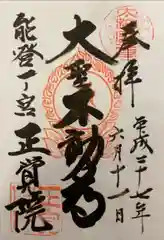 奉拝
平成二十七年
六月十一日
大聖不動尊
能登一ノ宮
正覚院